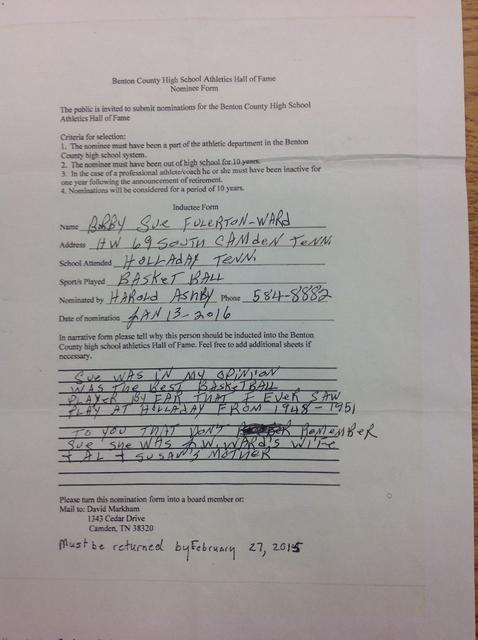 Benton County High School Athletics Hall of Fame
Nominee Form
The public is invited to submit nominations for the Benton County High School
Athletics Hall of Fame
Criteria for selection:
1. The nominee must have been a part of the athletic department in the Benton
County high school system.
2. The nominee must have been out of high school for 10 years.
3. In the case of a professional athlete/coach he or she must have been inactive for
one year following the announcement of retirement.
4. Nominations will be considered for a period of 10 years.
Inductee Form
Name BOBBY SUE FULERTON-WARD
Address HW 69 SOUTH CAMDEN TENN.
School Attended HOLLADAY TENN.
Sport/s Played BASKET BALL
Nominated by HAROLD ASHBY Phone 584-8882
Date of nomination JAN 13-2016
In narrative form please tell why this person should be inducted into the Benton
County high school athletics Hall of Fame. Feel free to add additional sheets if
necessary.
SUE WAS IN MY OPINION
WAS THE BEST BASKETBALL
PLAYER BY FAR THAT I EVER SAW
PLAY AT HOLLADAY FROM 1948-1951
TO YOU THAT DON'T REMEMBER
SUE SHE WAS J.W. WARD'S WIFE
+ AL + SUSAN'S MOTHER
Please turn this nomination form into a board member or:
Mail to: David Markham
1343 Cedar Drive
Camden, TN 38320
Must be returned by February 27, 2015